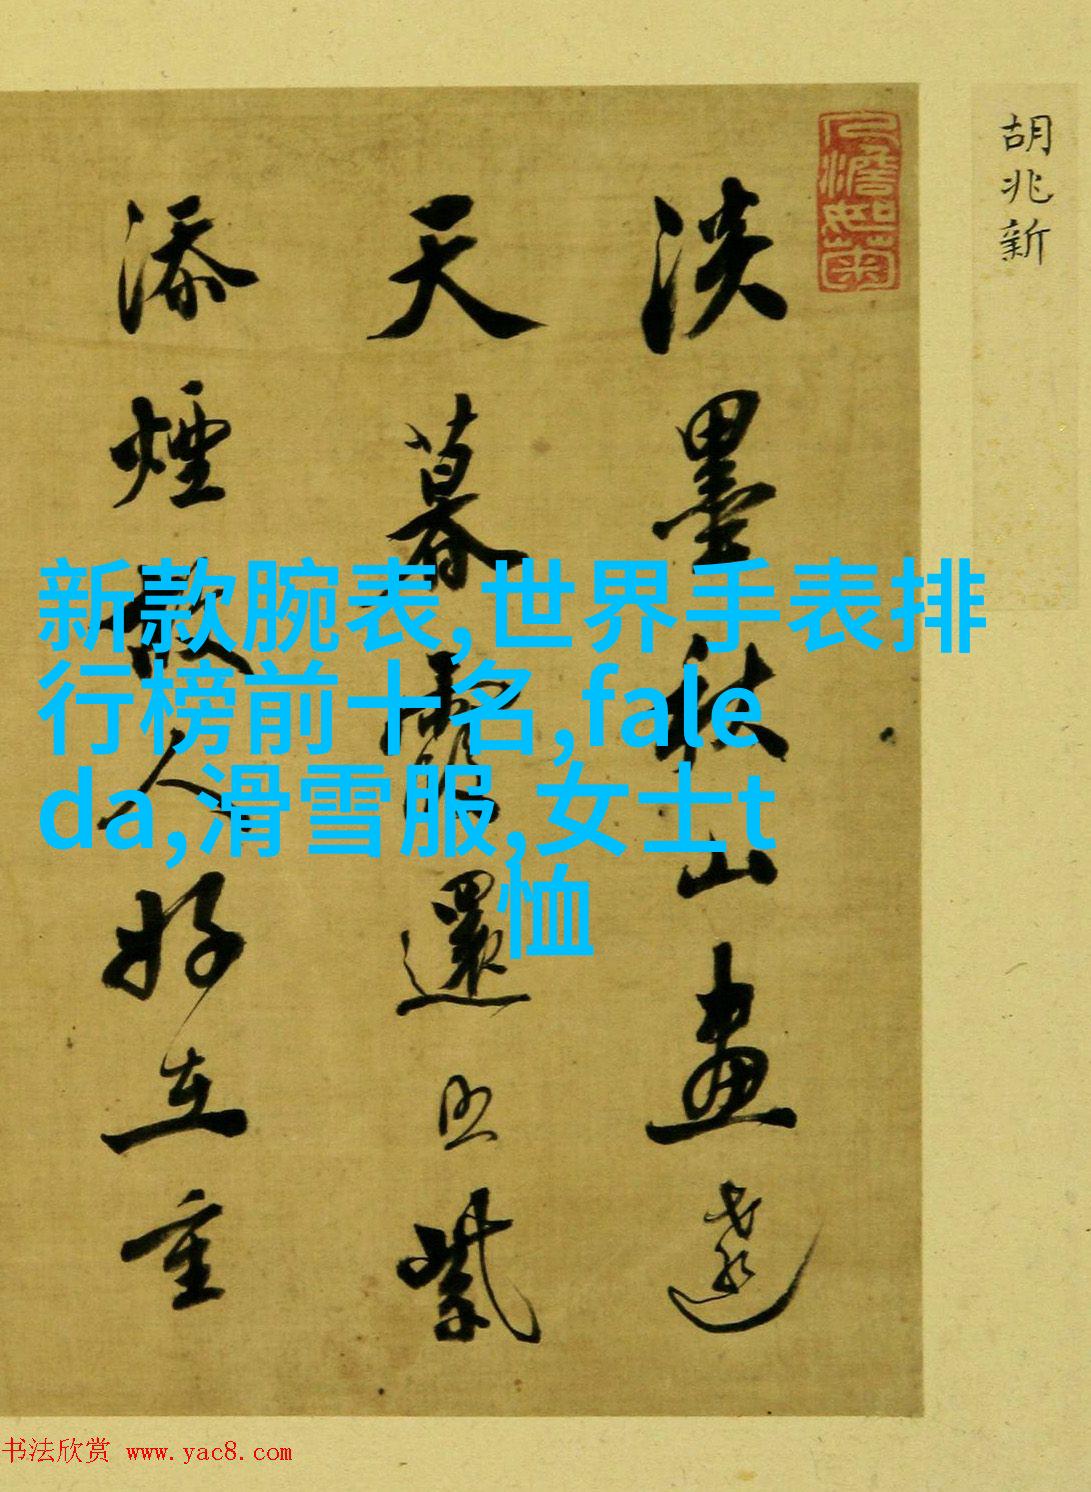 胡兆新
人澹如菊
淡墨秋山畫遠
天暮霞還照紫
添煙故人好在重
新款腕表,世界手表排
行榜前十名,fale
da,滑雪服,女士t
恤
书法欣赏 www.yac8.com